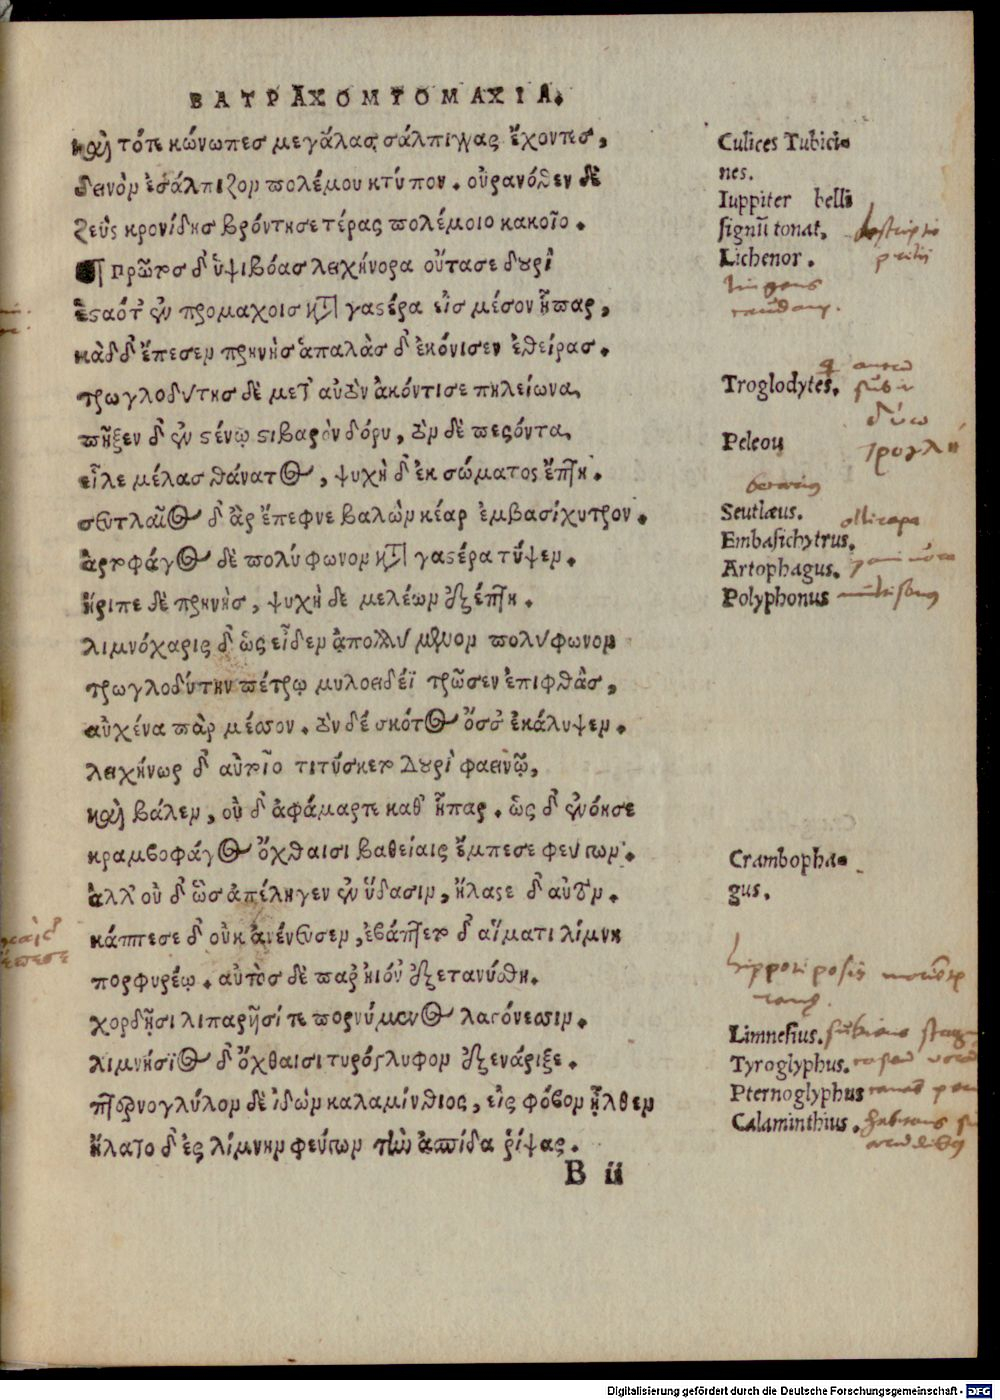 ΒΑΤΡΑΧΟΜΥΟΜΑΧΙΑ.
καὶ τότε κώνωπες μεγάλας σάλπιγγας ἔχοντες,
δεινὸν ἐσάλπιζον πολέμου κτύπον. οὐρανόθεν δὲ
ζεὺς κρονίδης βρόντησε τέρας πολέμοιο κακοῖο.
¶ Πρῶτος δ' ὑψιβόας λειχήνορα οὔτασε δουρὶ
ἑσαότ' ἐν προμάχοις κατὰ γαστέρα εἰς μέσον ἧπαρ,
κὰδ δ' ἔπεσεν πρηνὴς ἁπαλὰς δ' ἐκόνισεν ἐθείρας.
τρωγλοδύτης δὲ μετ' αὐτὸν ἀκόντισε πηλείωνα,
πῆξεν δ' ἐν στένῳ στιβαρὸν δόρυ, τὸν δὲ πεσόντα,
εἷλε μέλας θάνατος, ψυχὴ δ' ἐκ σώματος ἔπτη.
σευτλαῖος δ' ἂρ ἔπεφνε βαλὼν κέαρ ἐμβασίχυτρον.
ἀρτοφάγος δὲ πολύφωνον κατὰ γαστέρα τύψεν.
ἤριπε δὲ πρηνὴς, ψυχὴ δὲ μελέων ἐξέπτη.
λιμνόχαρις δ' ὡς εἶδεν ἀπολλύμενον πολύφωνον
τρωγλοδύτην πέτρῳ μυλοειδέϊ τρῶσεν ἐπιφθὰς,
αὐχένα παρ μέσσον. τὸν δέ σκότος ὄσσε ἐκάλυψεν.
λειχήνωρ δ' αὐτοῖο τιτύσκετο δουρὶ φαεινῷ,
καὶ βάλεν, οὐ δ' ἀφάμαρτε καθ' ἧπαρ. ὡς δ' ἐνόησε
κραμβοφάγος ὄχθαισι βαθείαις ἔμπεσε φεύγων.
ἀλλ' οὐ δ' ὣς ἀπέληγεν ἐν ὕδασιν, ἤλασε δ' αὐτόν.
κάππεσε δ' οὐκ ἀνένευσεν, ἐβάπτετο δ' αἵματι λίμνη
πορφυρέῳ. αὐτὸς δὲ παρ' ἠϊόν' ἐξετανύσθη.
χορδῇσι λιπαρῇσί τε πορνύμενος λαγόνεσσιν.
λιμνήσϊος δ' ὄχθαισι τυρόγλυφον ἐξενάριξε.
πτερνογλύλον δὲ ἰδὼν καλαμίνθιος, εἰς φόβον ἦλθεν
ἥλατο δ' ἐς λίμνην φεύγων τὴν ἀσπίδα ῥίψας.
B ii
Culices Tubici-
nes.
Iuppiter belli
signũ tonat,
Lichenor.
Troglodytes.
Peleou
Seutlæus.
Embasichytrus.
Artophagus.
Polyphonus
Crambopha-
gus.
Limnesius.
Tyroglyphus.
Pternoglyphus
Calaminthius.
Digitalisierung gefördert durch die Deutsche Forschungsgemeinschaft - DFG